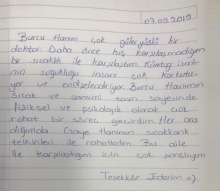 07.09.2019
Burcu Hanım çok güleryüzlü bir
doktor. Daha önce hiç karşılaşmadığım
bir sıcaklık ile karşılaştım. Küretaj ismi-
nin soğukluğu insanı çok korkutu-
yor ve endişelendiriyor. Burcu Hanımın
Sıcak ve samimi tavrı sayesinde
fiziksel ve psikolojik olarak çok
rahat bir süreç geçirdim. Her ara
dığımda Hanımın sıcakkanlı
telkinleri ile rahatladım. Bu aile
ile karşılaştığım için çok şanslıyım
Teşekkür Ederim :)